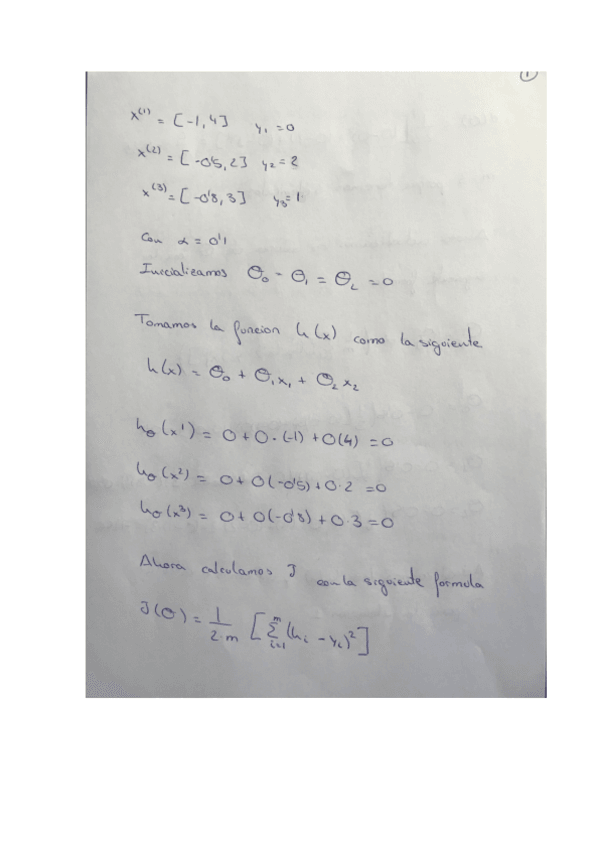 1
x⁽¹⁾ = [-1, 4] y₁ = 0
x⁽²⁾ = [-0'5, 2] y₂ = 2
x⁽³⁾ = [-0'8, 3] y₃ = 1
Con α = 0'1
Inicializamos θ₀ = θ₁ = θ₂ = 0
Tomamos la funcion h(x) como la siguiente
h(x) = θ₀ + θ₁x₁ + θ₂x₂
hθ(x¹) = 0 + 0·(-1) + 0(4) = 0
hθ(x²) = 0 + 0(-0'5) + 0·2 = 0
hθ(x³) = 0 + 0(-0'8) + 0·3 = 0
Ahora calculamos J con la siguiente formula
J(θ) = 1/2·m [∑ᵢ₌₁ᵐ (hᵢ - yᵢ)²]